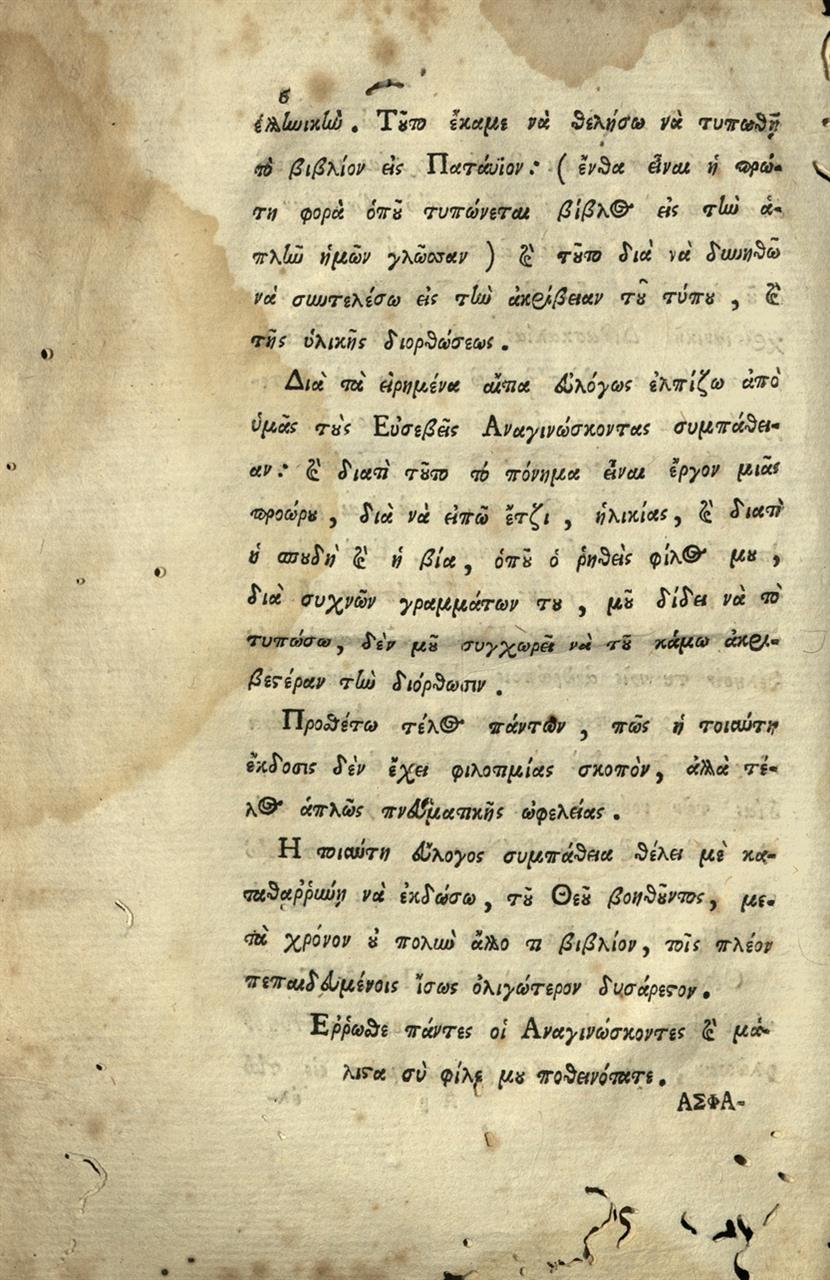 6
ἑλλωικὼ. Τοῦτο ἔκαμε νὰ θελήσω νὰ τυπωθῇ
τὸ βιβλίον εἰς Πατάϋϊον: (ἔνθα εἶναι ἡ πρώ-
τη φορὰ ὁποῦ τυπώνεται βίβλος εἰς τὴν ἁ-
πλῆν ἡμῶν γλῶσσαν) καὶ τοῦτο διὰ νὰ δυνηθῶ
νὰ συντελέσω εἰς τὴν ἀκρίβειαν τοῦ τύπου, καὶ
τῆς ὑλικῆς διορθώσεως.
Διὰ τὰ εἰρημένα αἴτια εὐλόγως ἐλπίζω ἀπὸ
ὑμᾶς τοὺς Εὐσεβεῖς Αναγινώσκοντας συμπάθει-
αν: καὶ διατὶ τοῦτο τὸ πόνημα εἶναι ἔργον μιᾶς
προώρου, διὰ νὰ εἰπῶ ἔτζι, ἡλικίας, καὶ διατὶ
ἡ σπουδὴ καὶ ἡ βία, ὁποῦ ὁ ῥηθεὶς φίλος μου,
διὰ συχνῶν γραμμάτων του, μοῦ δίδει νὰ τὸ
τυπώσω, δὲν μοῦ συγχωρεῖ νὰ τοῦ κάμω ἀκρι-
βεστέραν τὴν διόρθωσιν.
Προσθέτω τέλος πάντων, πῶς ἡ τοιαύτη
ἔκδοσις δὲν ἔχει φιλοτιμίας σκοπὸν, ἀλλὰ τέ-
λος ἁπλῶς πνευματικῆς ὠφελείας.
Η τοιαύτη εὔλογος συμπάθεια θέλει μὲ κα-
ταθαῤῥύνῃ νὰ ἐκδώσω, τοῦ Θεοῦ βοηθοῦντος, με-
τὰ χρόνον οὐ πολὺν ἄλλο τι βιβλίον, τοῖς πλέον
πεπαιδευμένοις ἴσως ὀλιγώτερον δυσάρεστον.
Εῤῥωσθε πάντες οἱ Αναγινώσκοντες καὶ μά-
λιστα σὺ φίλε μου ποθεινότατε.
ΑΣΦΑ-